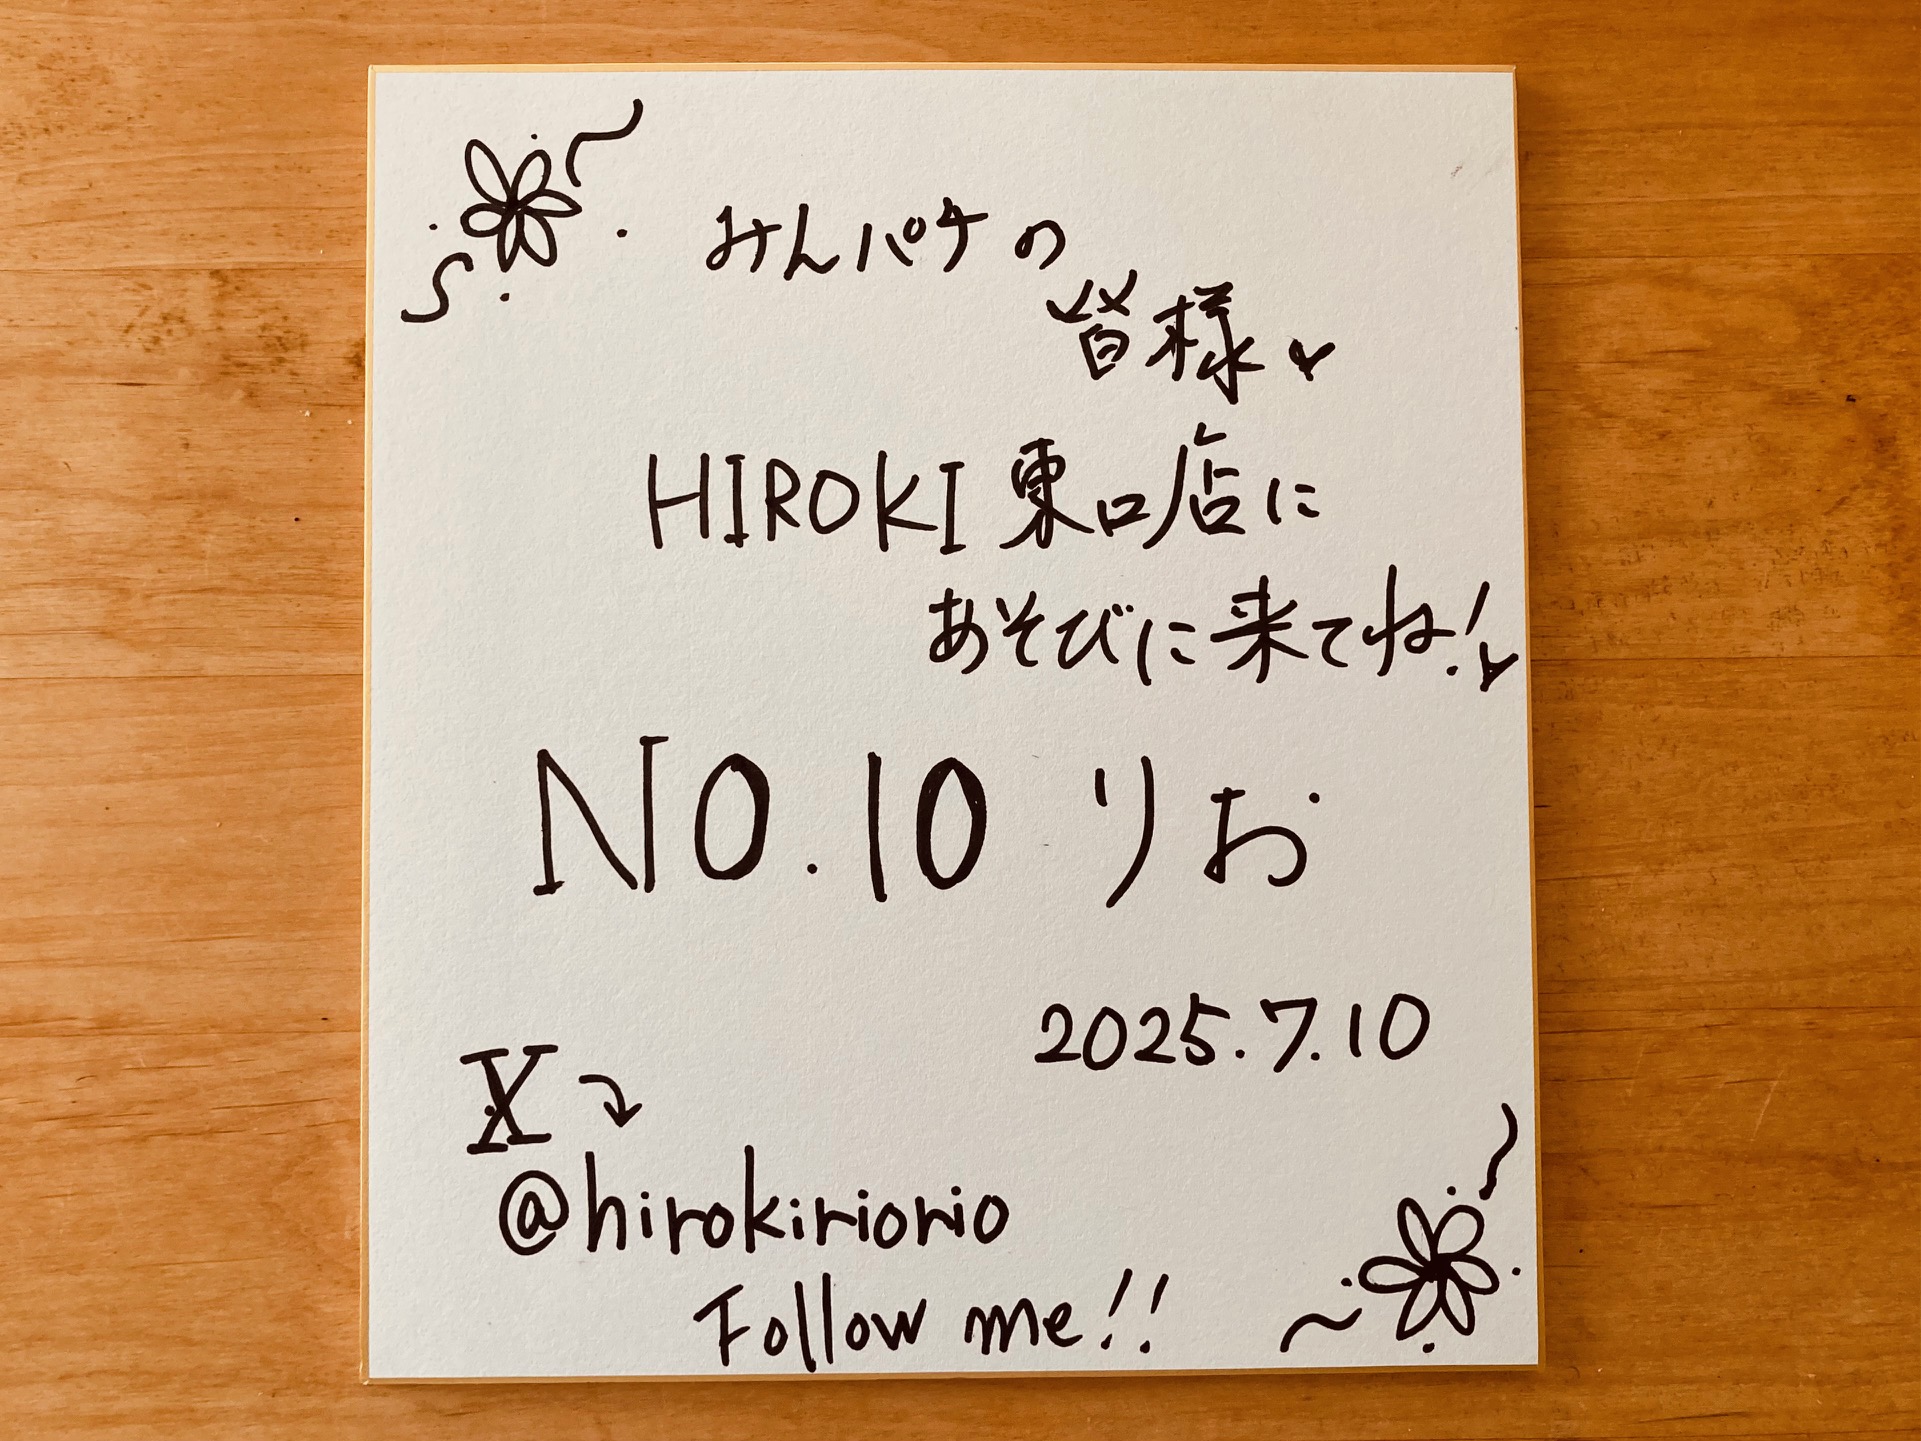 みんパチの
皆様♥
HIROKI 東口店に
あそびに来てね!♥
NO.10 りお
2025.7.10
X
@hirokiriorio
Follow me!!